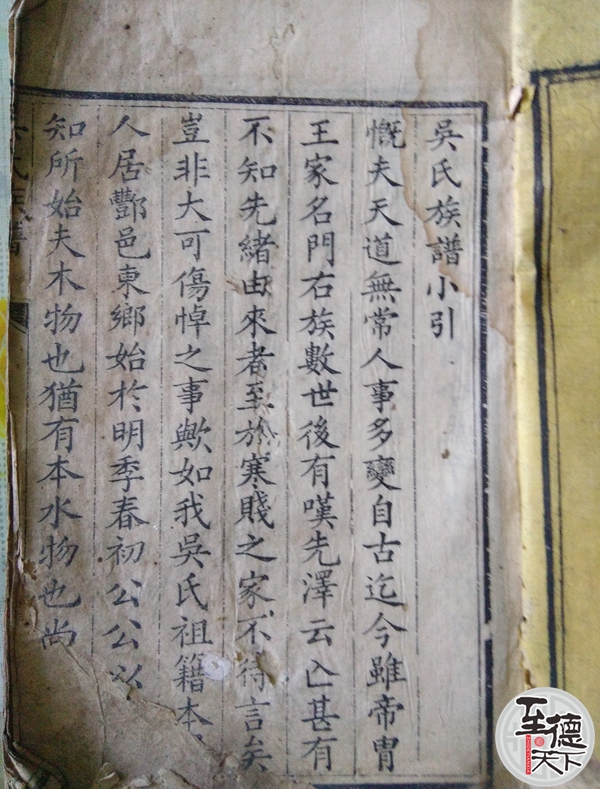 吳氏族譜小引
慨夫天道無常人事多變自古迄今雖帝胄
王家名門右族數世後有嘆先澤云亾甚有
不知先緒由來者至於寒賤之家不待言矣
豈非大可傷悼之事歟如我吳氏祖籍本
人居酆邑東鄉始於明季春初公公以
知所始夫木物也猶有本水物也尚
氏族譜
至德天下